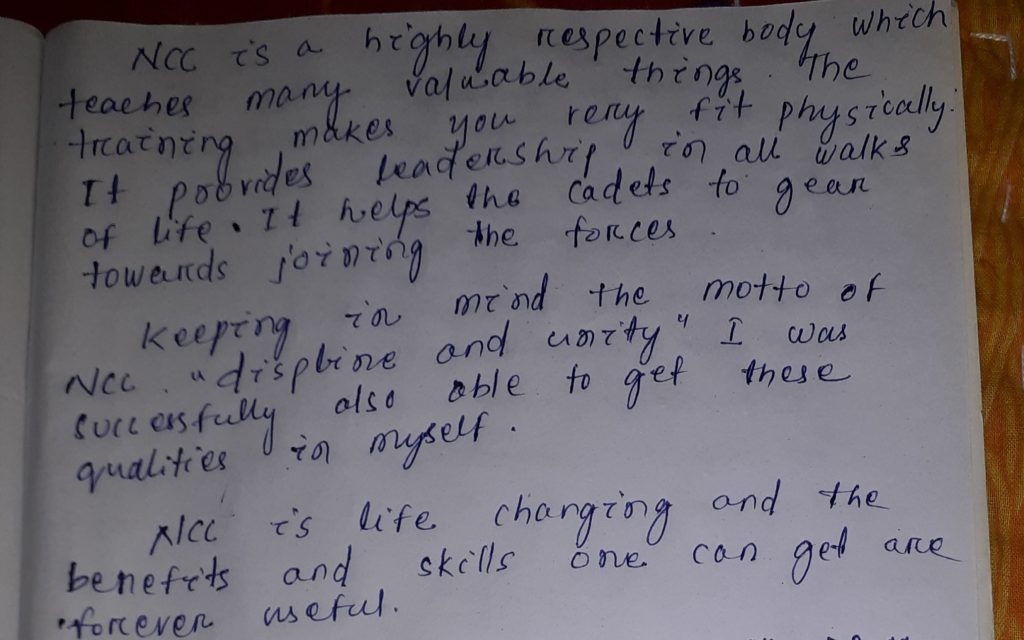 NCC is a highly respective body which
teaches many valuable things. The
training makes you very fit physically.
It poovides leadership in all walks
of life. It helps the cadets to gear
towards joining the forces.
Keeping in mind the motto of
NCC. "displine and unity" I was
successfully also able to get these
qualities in myself.
NCC is life changing and the
benefits and skills one can get are
forever useful.